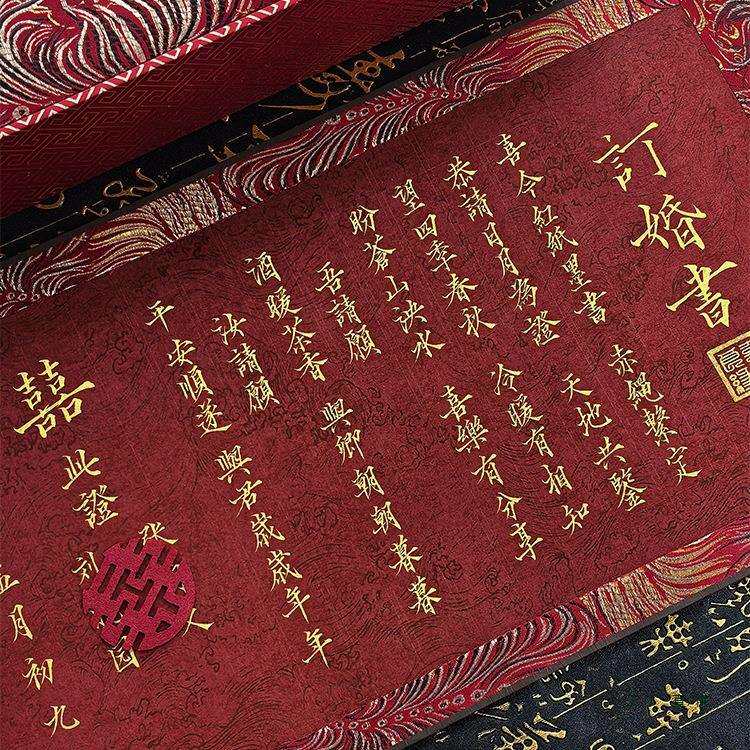 訂婚書
喜今紅紙墨書 赤繩繫定
恭請日月為證 天地共鑒
望四季春秋 冷暖有相知
盼蒼山洪水 喜樂有分享
吾請願
酒暖茶香 與卿朝朝暮暮
汝請願
平安順遂 與君歲歲年年
囍
此證
张 人
刘 园
五月初九
囍